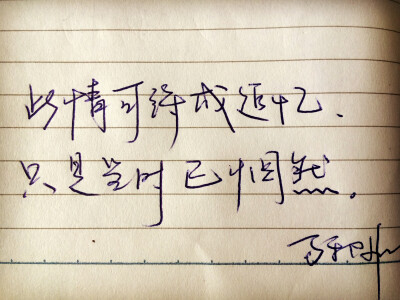 此情可待成追忆、
只是当时已惘然。